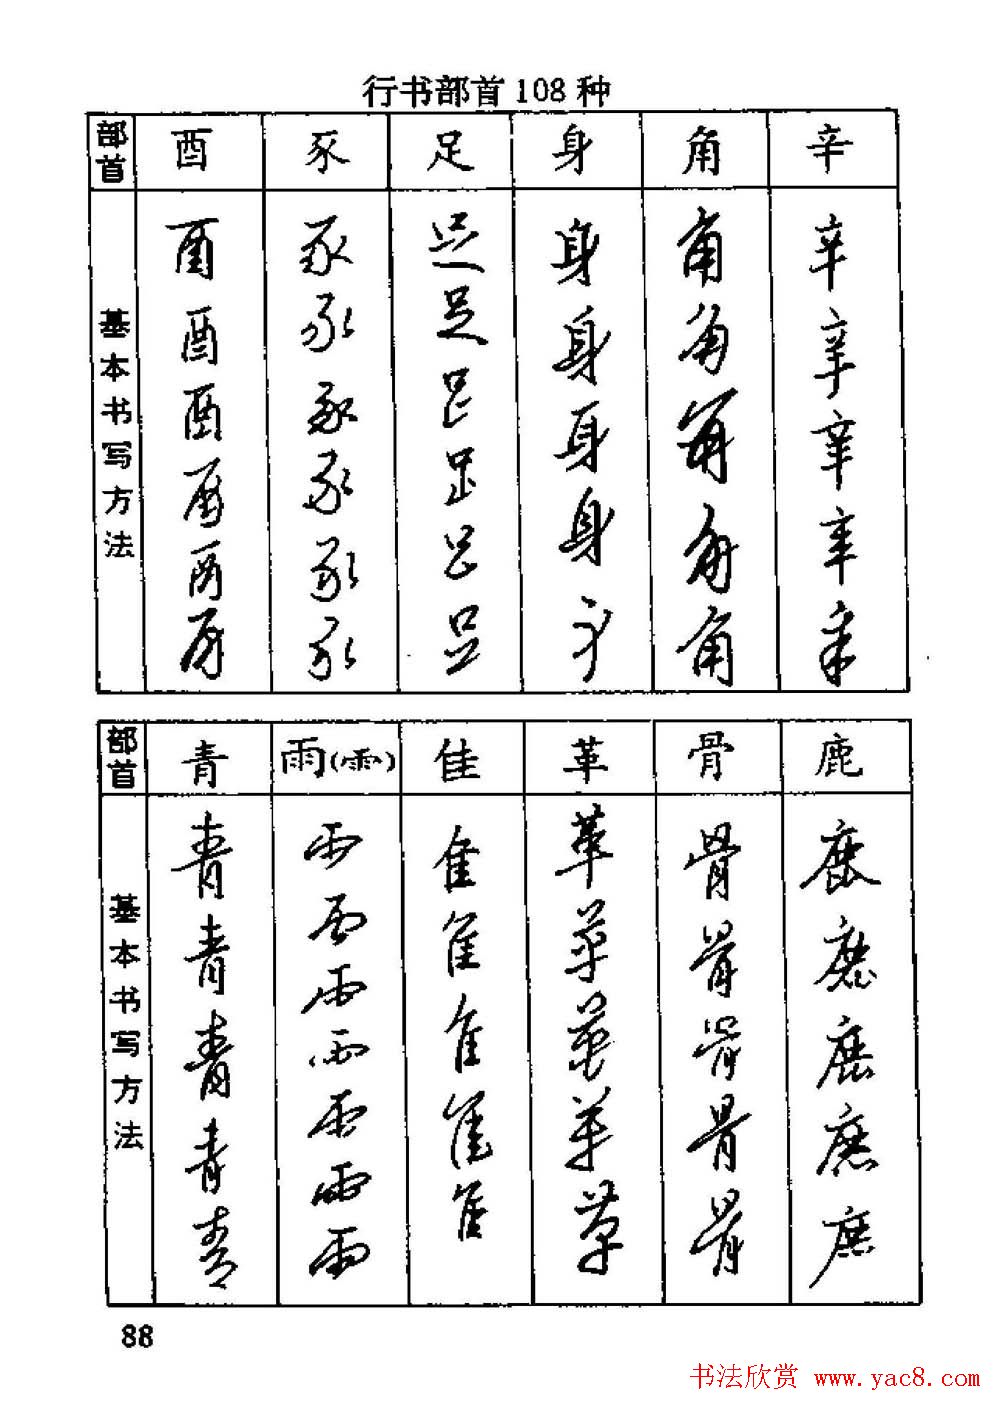 行书部首108种
部首 酉 豕 足 身 角 辛
基本书写方法
酉 豕 足 身 角 辛
酉 豕 足 身 角 辛
酉 豕 足 身 角 辛
酉 豕 足 身 角 辛
酉 豕 足 身 角 辛
酉 豕 足
部首 青 雨(⻗) 佳 革 骨 鹿
基本书写方法
青 雨 隹 革 骨 鹿
青 雨 隹 革 骨 鹿
青 雨 隹 革 骨 鹿
青 雨 隹 革 骨 鹿
青 雨 隹 革 骨 鹿
雨
雨
88
书法欣赏 www.yac8.com